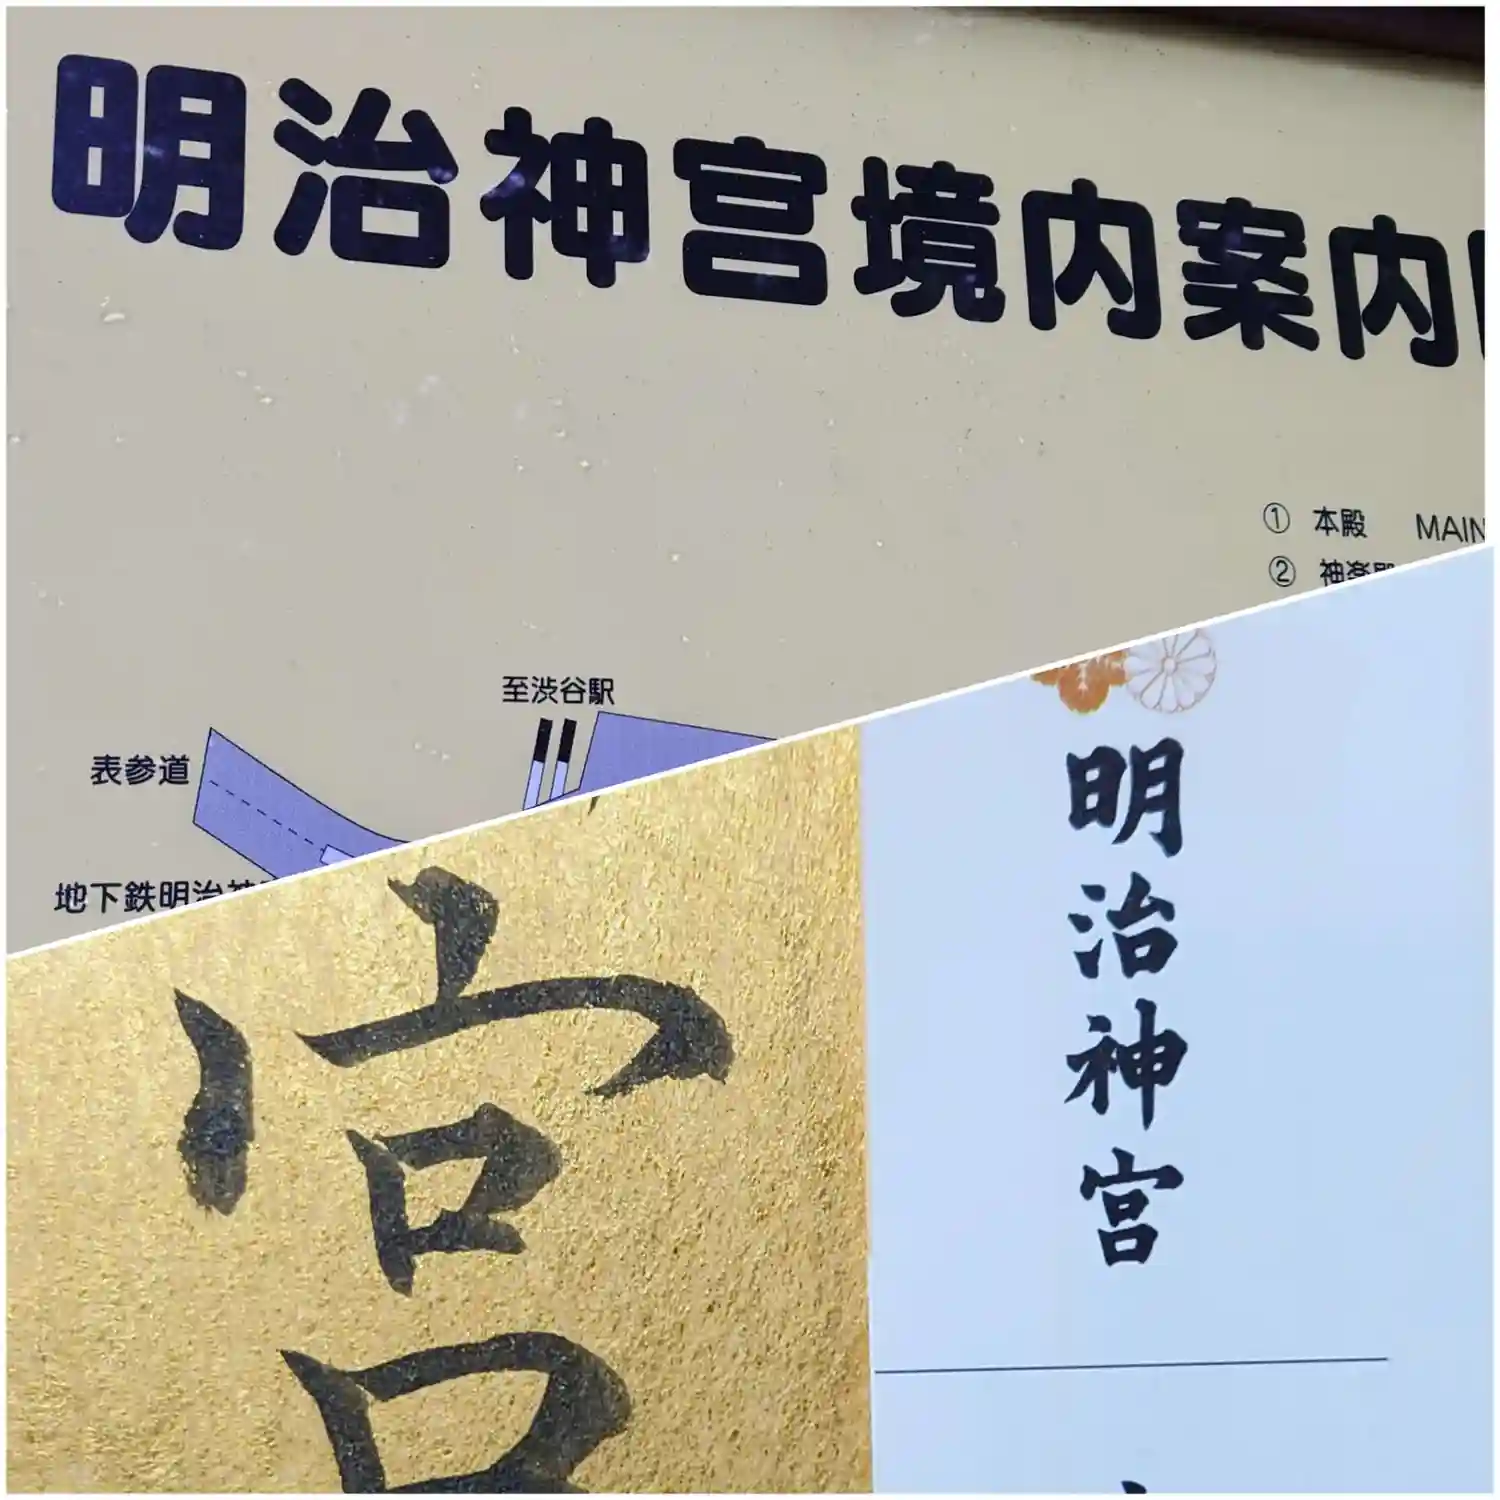 明治神宮境内案内
① 本殿 MAIN
② 神楽殿
至渋谷駅
表参道
地下鉄明治神
宮
明治神宮